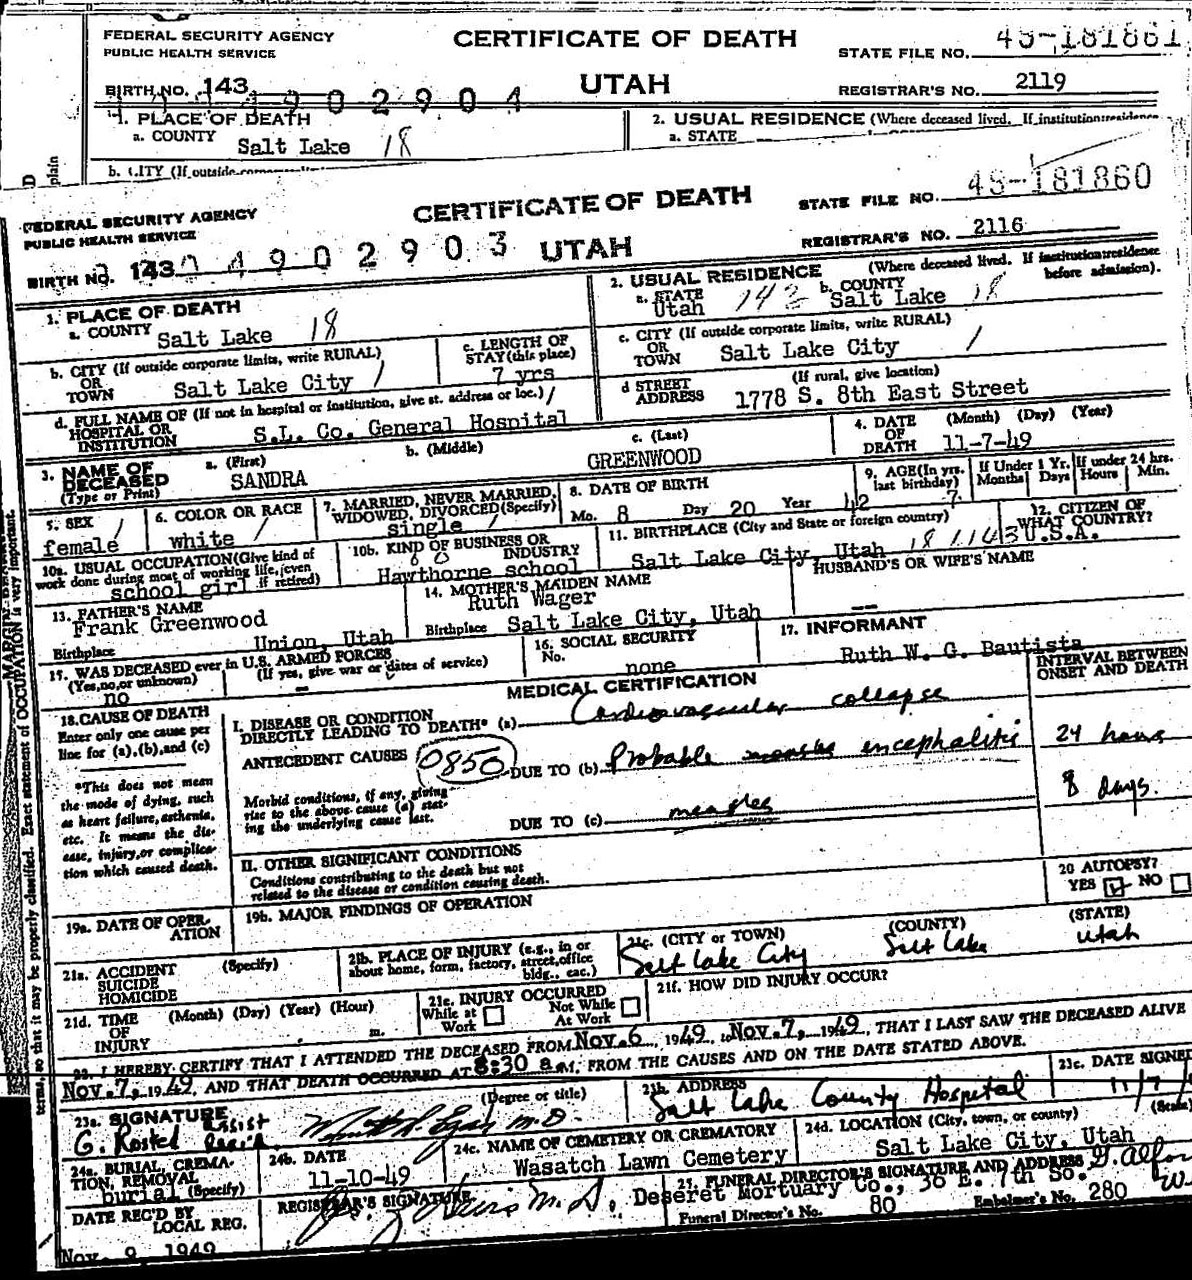 FEDERAL SECURITY AGENCY
PUBLIC HEALTH SERVICE
CERTIFICATE OF DEATH
STATE FILE NO. 49-181861
BIRTH NO. 143
4902904
UTAH
REGISTRAR'S NO. 2119
1. PLACE OF DEATH
a. COUNTY Salt Lake 18
2. USUAL RESIDENCE (Where deceased lived. If institution:residence
a. STATE
b. CITY (If outside
plain
FEDERAL SECURITY AGENCY
PUBLIC HEALTH SERVICE
CERTIFICATE OF DEATH
STATE FILE NO. 49-181860
BIRTH NO. 143
4902903
UTAH
REGISTRAR'S NO. 2116
1. PLACE OF DEATH
a. COUNTY Salt Lake 18
2. USUAL RESIDENCE (Where deceased lived. If institution:residence before admission).
a. STATE Utah 143 b. COUNTY Salt Lake 18
b. CITY (If outside corporate limits, write RURAL)
OR TOWN Salt Lake City /
c. LENGTH OF STAY (this place)
7 yrs
c. CITY (If outside corporate limits, write RURAL)
OR TOWN Salt Lake City /
d. FULL NAME OF (If not in hospital or institution, give st. address or loc.) /
HOSPITAL OR INSTITUTION S.L. Co. General Hospital
d STREET ADDRESS (If rural, give location)
1778 S. 8th East Street
3. NAME OF DECEASED (Type or Print)
a. (First) SANDRA
b. (Middle)
c. (Last) GREENWOOD
4. DATE OF DEATH (Month) (Day) (Year)
11-7-49
5. SEX /
female
6. COLOR OR RACE
white /
7. MARRIED, NEVER MARRIED, WIDOWED, DIVORCED (Specify)
single /
8. DATE OF BIRTH
Mo. 8 Day 20 Year 42
9. AGE (In yrs. last birthday)
7
If Under 1 Yr. Months Days
If under 24 hrs. Hours Min.
10a. USUAL OCCUPATION (Give kind of work done during most of working life, even if retired)
school girl
10b. KIND OF BUSINESS OR INDUSTRY
Hawthorne school
11. BIRTHPLACE (City and State or foreign country)
Salt Lake City, Utah 18
12. CITIZEN OF WHAT COUNTRY?
U.S.A.
13. FATHER'S NAME
Frank Greenwood
Birthplace Union, Utah
14. MOTHER'S MAIDEN NAME
Ruth Wager
Birthplace Salt Lake City, Utah
HUSBAND'S OR WIFE'S NAME
--
WAS DECEASED ever in U.S. ARMED FORCES
(Yes, no, or unknown) (If yes, give war or dates of service)
no -
16. SOCIAL SECURITY No.
none
17. INFORMANT
Ruth W. G. Bautista
MEDICAL CERTIFICATION
INTERVAL BETWEEN ONSET AND DEATH
18. CAUSE OF DEATH
Enter only one cause per line for (a), (b), and (c)
*This does not mean the mode of dying, such as heart failure, asthenia, etc. It means the disease, injury, or complication which caused death.
I. DISEASE OR CONDITION DIRECTLY LEADING TO DEATH* (a) Cardiovascular collapse
ANTECEDENT CAUSES 0850 DUE TO (b) Probable measles encephalitis 24 hours
Morbid conditions, if any, giving rise to the above cause (a) stating the underlying cause last.
DUE TO (c) measles 8 days.
II. OTHER SIGNIFICANT CONDITIONS
Conditions contributing to the death but not related to the disease or condition causing death.
20 AUTOPSY?
YES NO
19a. DATE OF OPERATION
19b. MAJOR FINDINGS OF OPERATION
21a. ACCIDENT SUICIDE HOMICIDE (Specify)
21b. PLACE OF INJURY (e.g., in or about home, form, factory, street, office bldg., eac.)
21c. (CITY or TOWN) (COUNTY) (STATE)
Salt Lake City Salt Lake Utah
21d. TIME OF INJURY (Month) (Day) (Year) (Hour) m.
21e. INJURY OCCURRED
While at Work Not While At Work
21f. HOW DID INJURY OCCUR?
22. I HEREBY CERTIFY THAT I ATTENDED THE DECEASED FROM Nov.6, 1949, to Nov.7, 1949, THAT I LAST SAW THE DECEASED ALIVE
Nov.7, 1949, AND THAT DEATH OCCURRED AT 8:30 a.M, FROM THE CAUSES AND ON THE DATE STATED ABOVE.
23a. SIGNATURE (Degree or title)
M.D.
23b. ADDRESS
Salt Lake County Hospital
23c. DATE SIGNED
11/7/
24a. BURIAL, CREMATION, REMOVAL (Specify)
burial
24b. DATE
11-10-49
24c. NAME OF CEMETERY OR CREMATORY
Wasatch Lawn Cemetery
24d. LOCATION (City, town, or county) (State)
Salt Lake City, Utah
DATE REC'D BY LOCAL REG.
Nov. 9 1949
REGISTRAR'S SIGNATURE
M.D.
FUNERAL DIRECTOR'S SIGNATURE AND ADDRESS
Deseret Mortuary Co., 36 E. 7th So.
Funeral Director's No. 80 Embalmer's No. 280